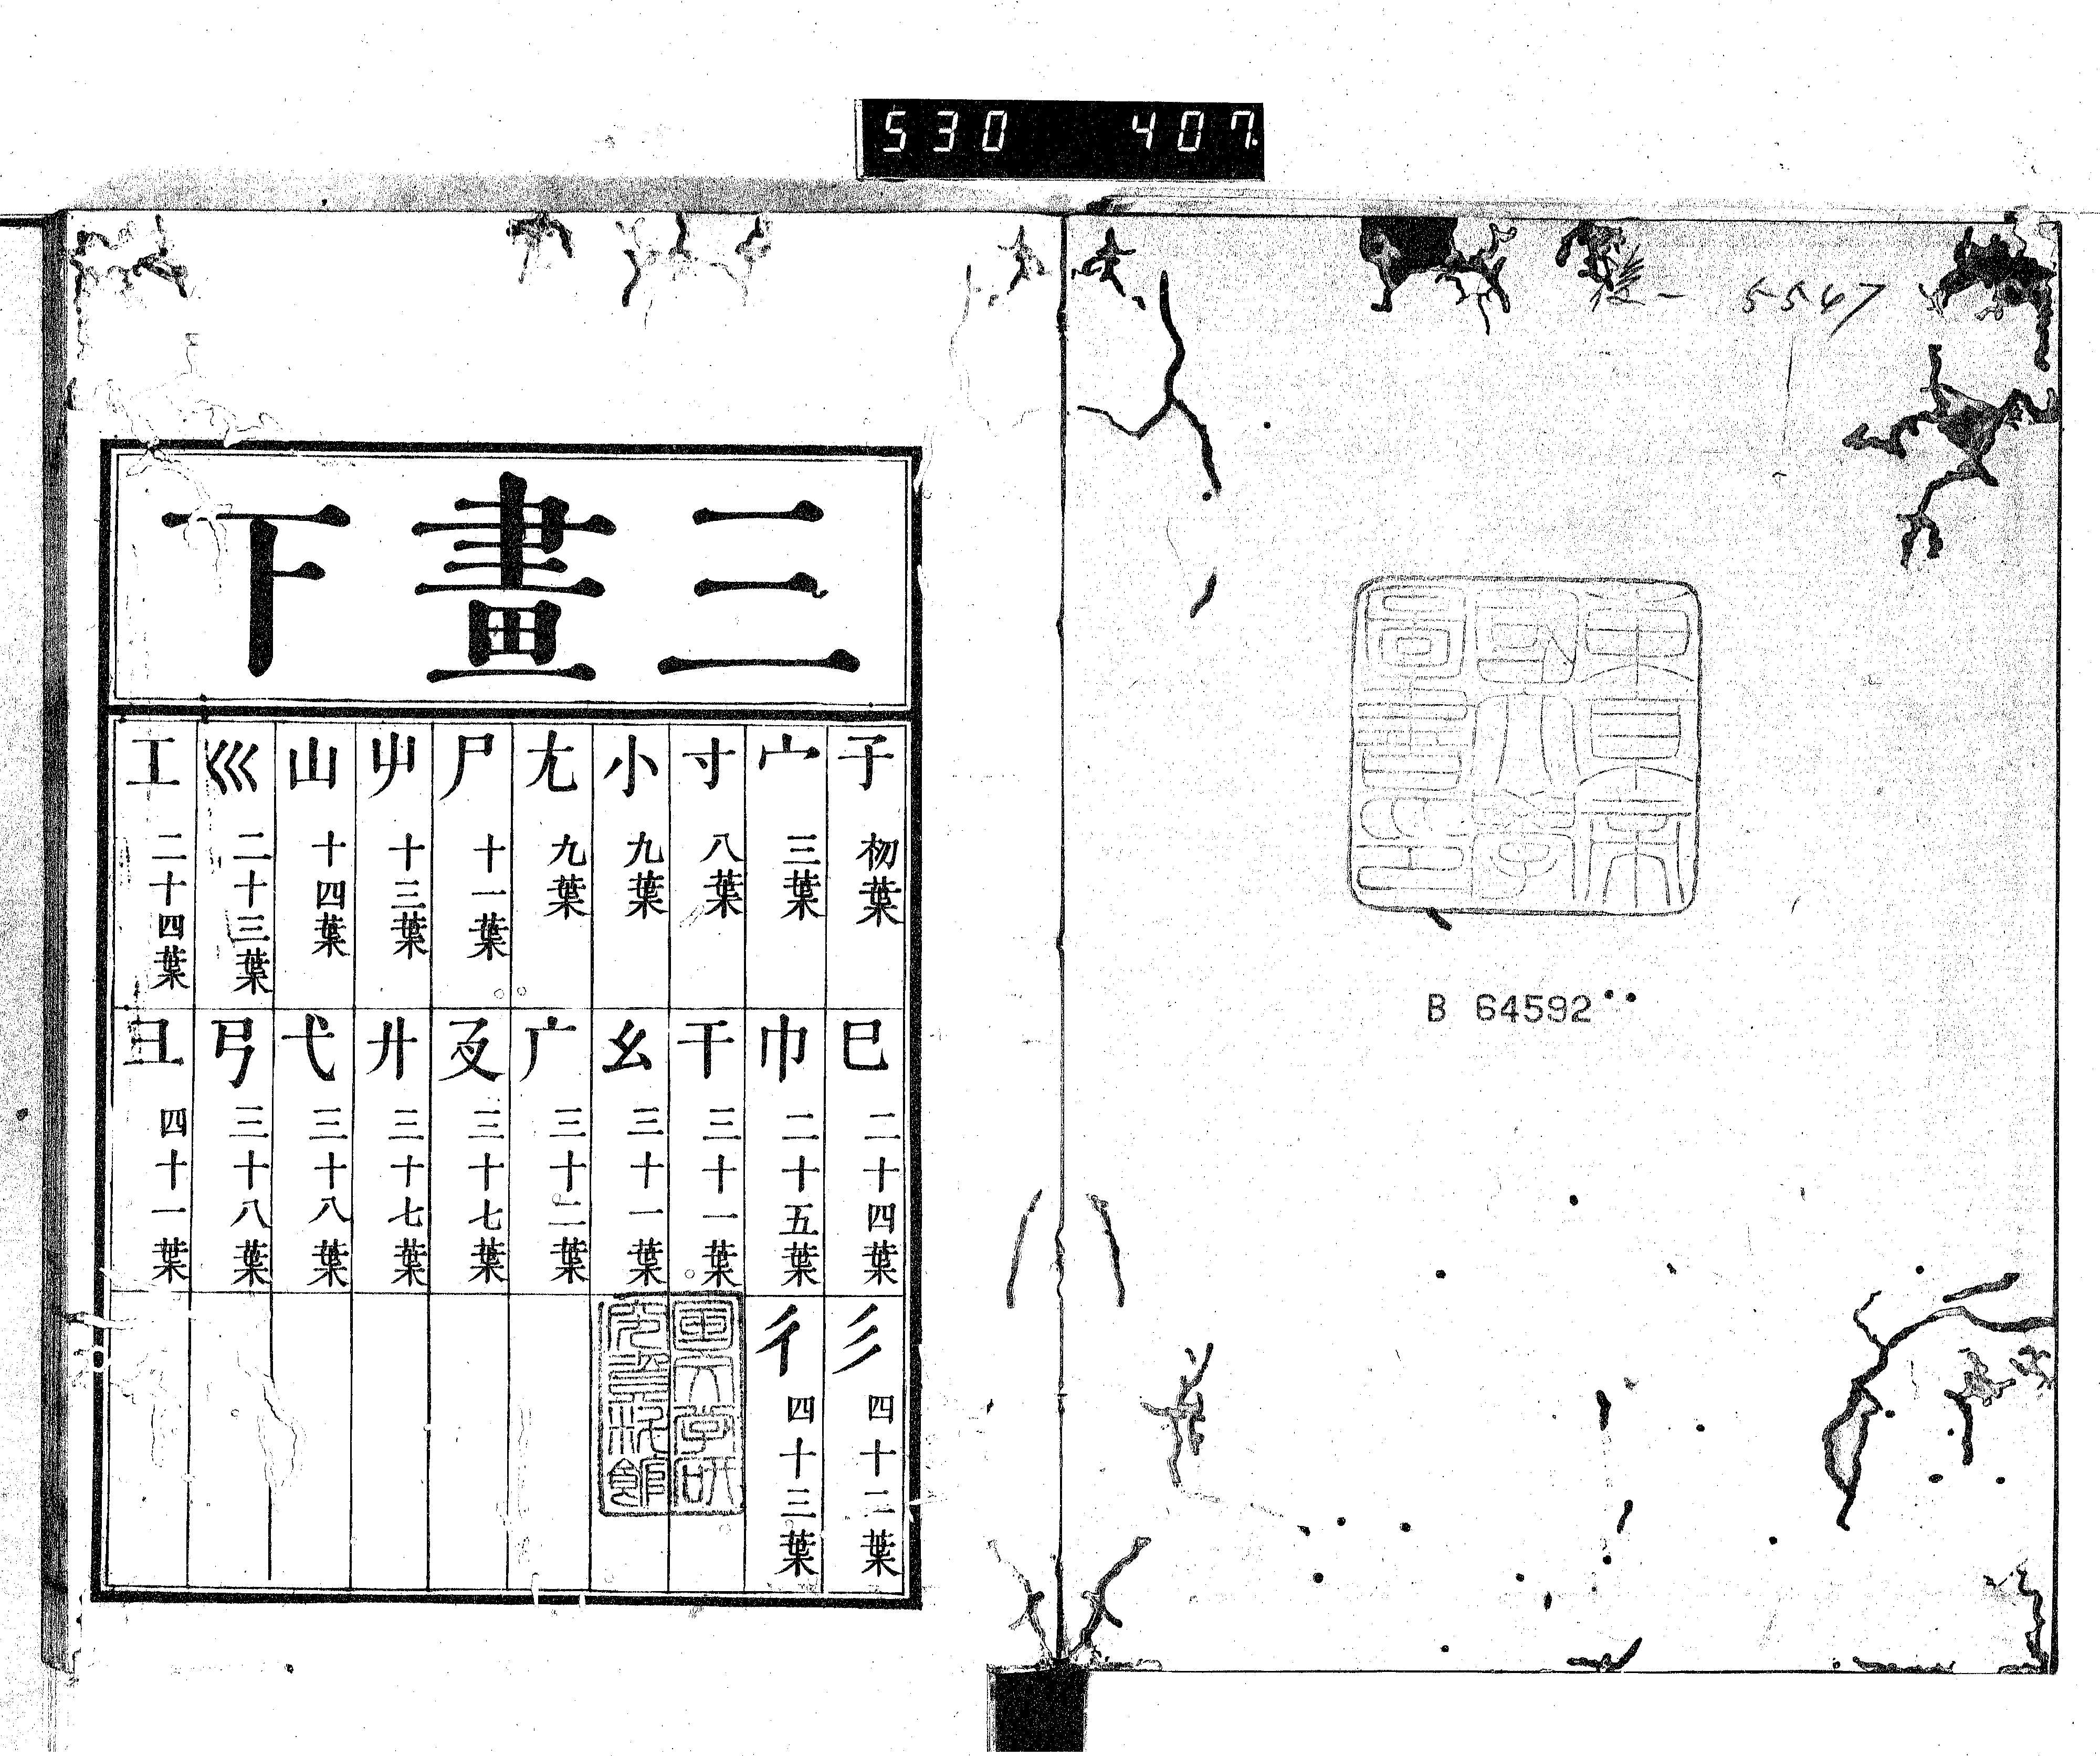 530 407.
東京帝
國大學
圖書印
B 64592
三畫下
子 初葉
宀 三葉
寸 八葉
小 九葉
尢 九葉
尸 十一葉
屮 十三葉
山 十四葉
巛 二十三葉
工 二十四葉
巳 二十四葉
巾 二十五葉
干 三十一葉
幺 三十一葉
广 三十二葉
廴 三十七葉
廾 三十七葉
弋 三十八葉
弓 三十八葉
彐 四十一葉
彡 四十二葉
彳 四十三葉
国文学研
究資料館